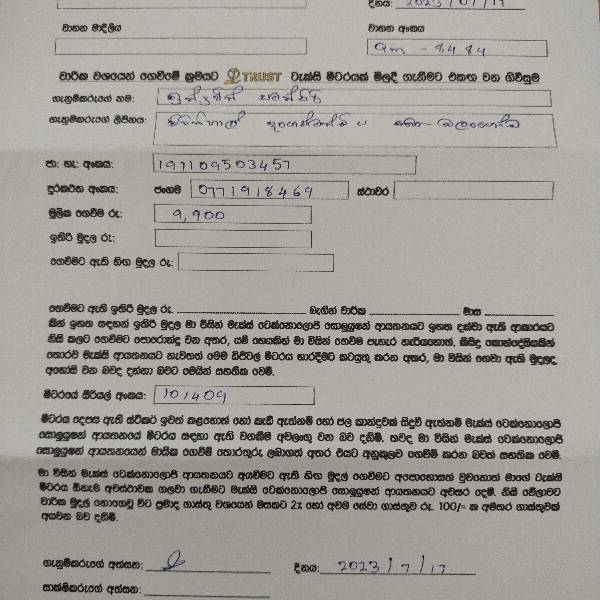 දිනය: 2023/07/17
වාහන මාදිලිය
වාහන අංකය
QM - 8484
වාරික වශයෙන් ගෙවීමේ ක්‍රමයට TRUST ටැක්සි මීටරයක් මිලදී ගැනීමට එකඟ වන ගිවිසුම
ගැනුම්කරුගේ නම:
ගැනුම්කරුගේ ලිපිනය:
ජා: හැ: අංකය: 197109503457
දුරකථන අංකය: ජංගම 0771918469 ස්ථාවර
මූලික ගෙවීම රු: 9,900
ඉතිරි මුදල රු:
ගෙවීමට ඇති හිඟ මුදල රු:
ගෙවීමට ඇති ඉතිරි මුදල රු. බැගින් වාරික මාස
කින් ඉහත සඳහන් ඉතිරි මුදල මා විසින් මැක්ස් ටෙක්නොලොජි සොලූෂන් ආයතනයට ඉහත දක්වා ඇති ආකාරයට
නිසි කලට ගෙවීමට පොරොන්දු වන අතර, යම් හෙයකින් මා විසින් ගෙවීම පැහැර හැරියහොත්, කිසිදු කොන්දේසියකින්
තොරව මැක්ස් ආයතනයට නැවතත් මෙම ඩිජිටල් මීටරය භාරදීමට කටයුතු කරන අතර, මා විසින් ගෙවා ඇති මුදලද
අහෝසි වන බවද දන්නා බවට මෙයින් සහතික වෙමි.
මීටරයේ සීරියල් අංකය: 101409
මීටරය දෙපස ඇති ස්ටිකර් ඉවත් කළහොත් හෝ කැඩී ඇත්නම් හෝ ජල කාන්දුවක් සිදුවී ඇත්නම් මැක්ස් ටෙක්නොලොජි
සොලූෂන් ආයතනයේ මීටරය සඳහා ඇති වගකීම අවලංගු වන බව දනිමි. තවද මා විසින් මැක්ස් ටෙක්නොලොජි
සොලූෂන් ආයතනයෙන් මාසික ගෙවීම් තොරතුරු ලබාගත් අතර එයට අනුකූලව ගෙවීම් කරන බවත් සහතික වෙමි.
මා විසින් මැක්ස් ටෙක්නොලොජි ආයතනයට අයවීමට ඇති හිඟ මුදල් ගෙවීමට අපොහොසත් වුවහොත් මාගේ ටැක්සි
මීටරය ඕනෑම අවස්ථාවක ගලවා ගැනීමට මැක්ස් ටෙක්නොලොජි සොලූෂන් ආයතනයට අවසර දෙමි. නිසි වේලාවට
වාරික මුදල් නොගෙවූ විට ප්‍රමාද ගාස්තු වශයෙන් මසකට 2% හෝ අවම සේවා ගාස්තුව රු. 100/= ක අමතර ගාස්තුවක්
අයවන බව දනිමි.
ගැනුම්කරුගේ අත්සන: දිනය: 2023/7/17
සාක්ෂිකරුගේ අත්සන: